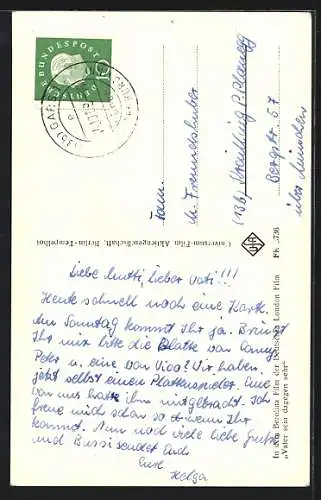 DEUTSCHE BUNDESPOST
10
Fam.
de Fremeschhuber
(13b) P. Planegg
Bergstr. 57
über München
Universum-Film Aktiengesellschaft, Berlin-Tempelhof
UFA
FK
In dem Berolina Film der Deutschen London Film
„Vater sein dagegen sehr“
Liebe Mutti, lieber Vati!!!
Heute schnell noch eine Karte.
Am Sonntag kommt Ihr ja. Bringt
Ihr mir bitte die Platte von Conny
Peter u. eine von Vico? Wir haben
jetzt selbst einen Plattenspieler. Eine
von uns hatte ihn mitgebracht. Ich
freue mich schon so wenn Ihr
kommt. Nun noch viele liebe Grüße
und Bussi sendet Euch
Eure
Helga